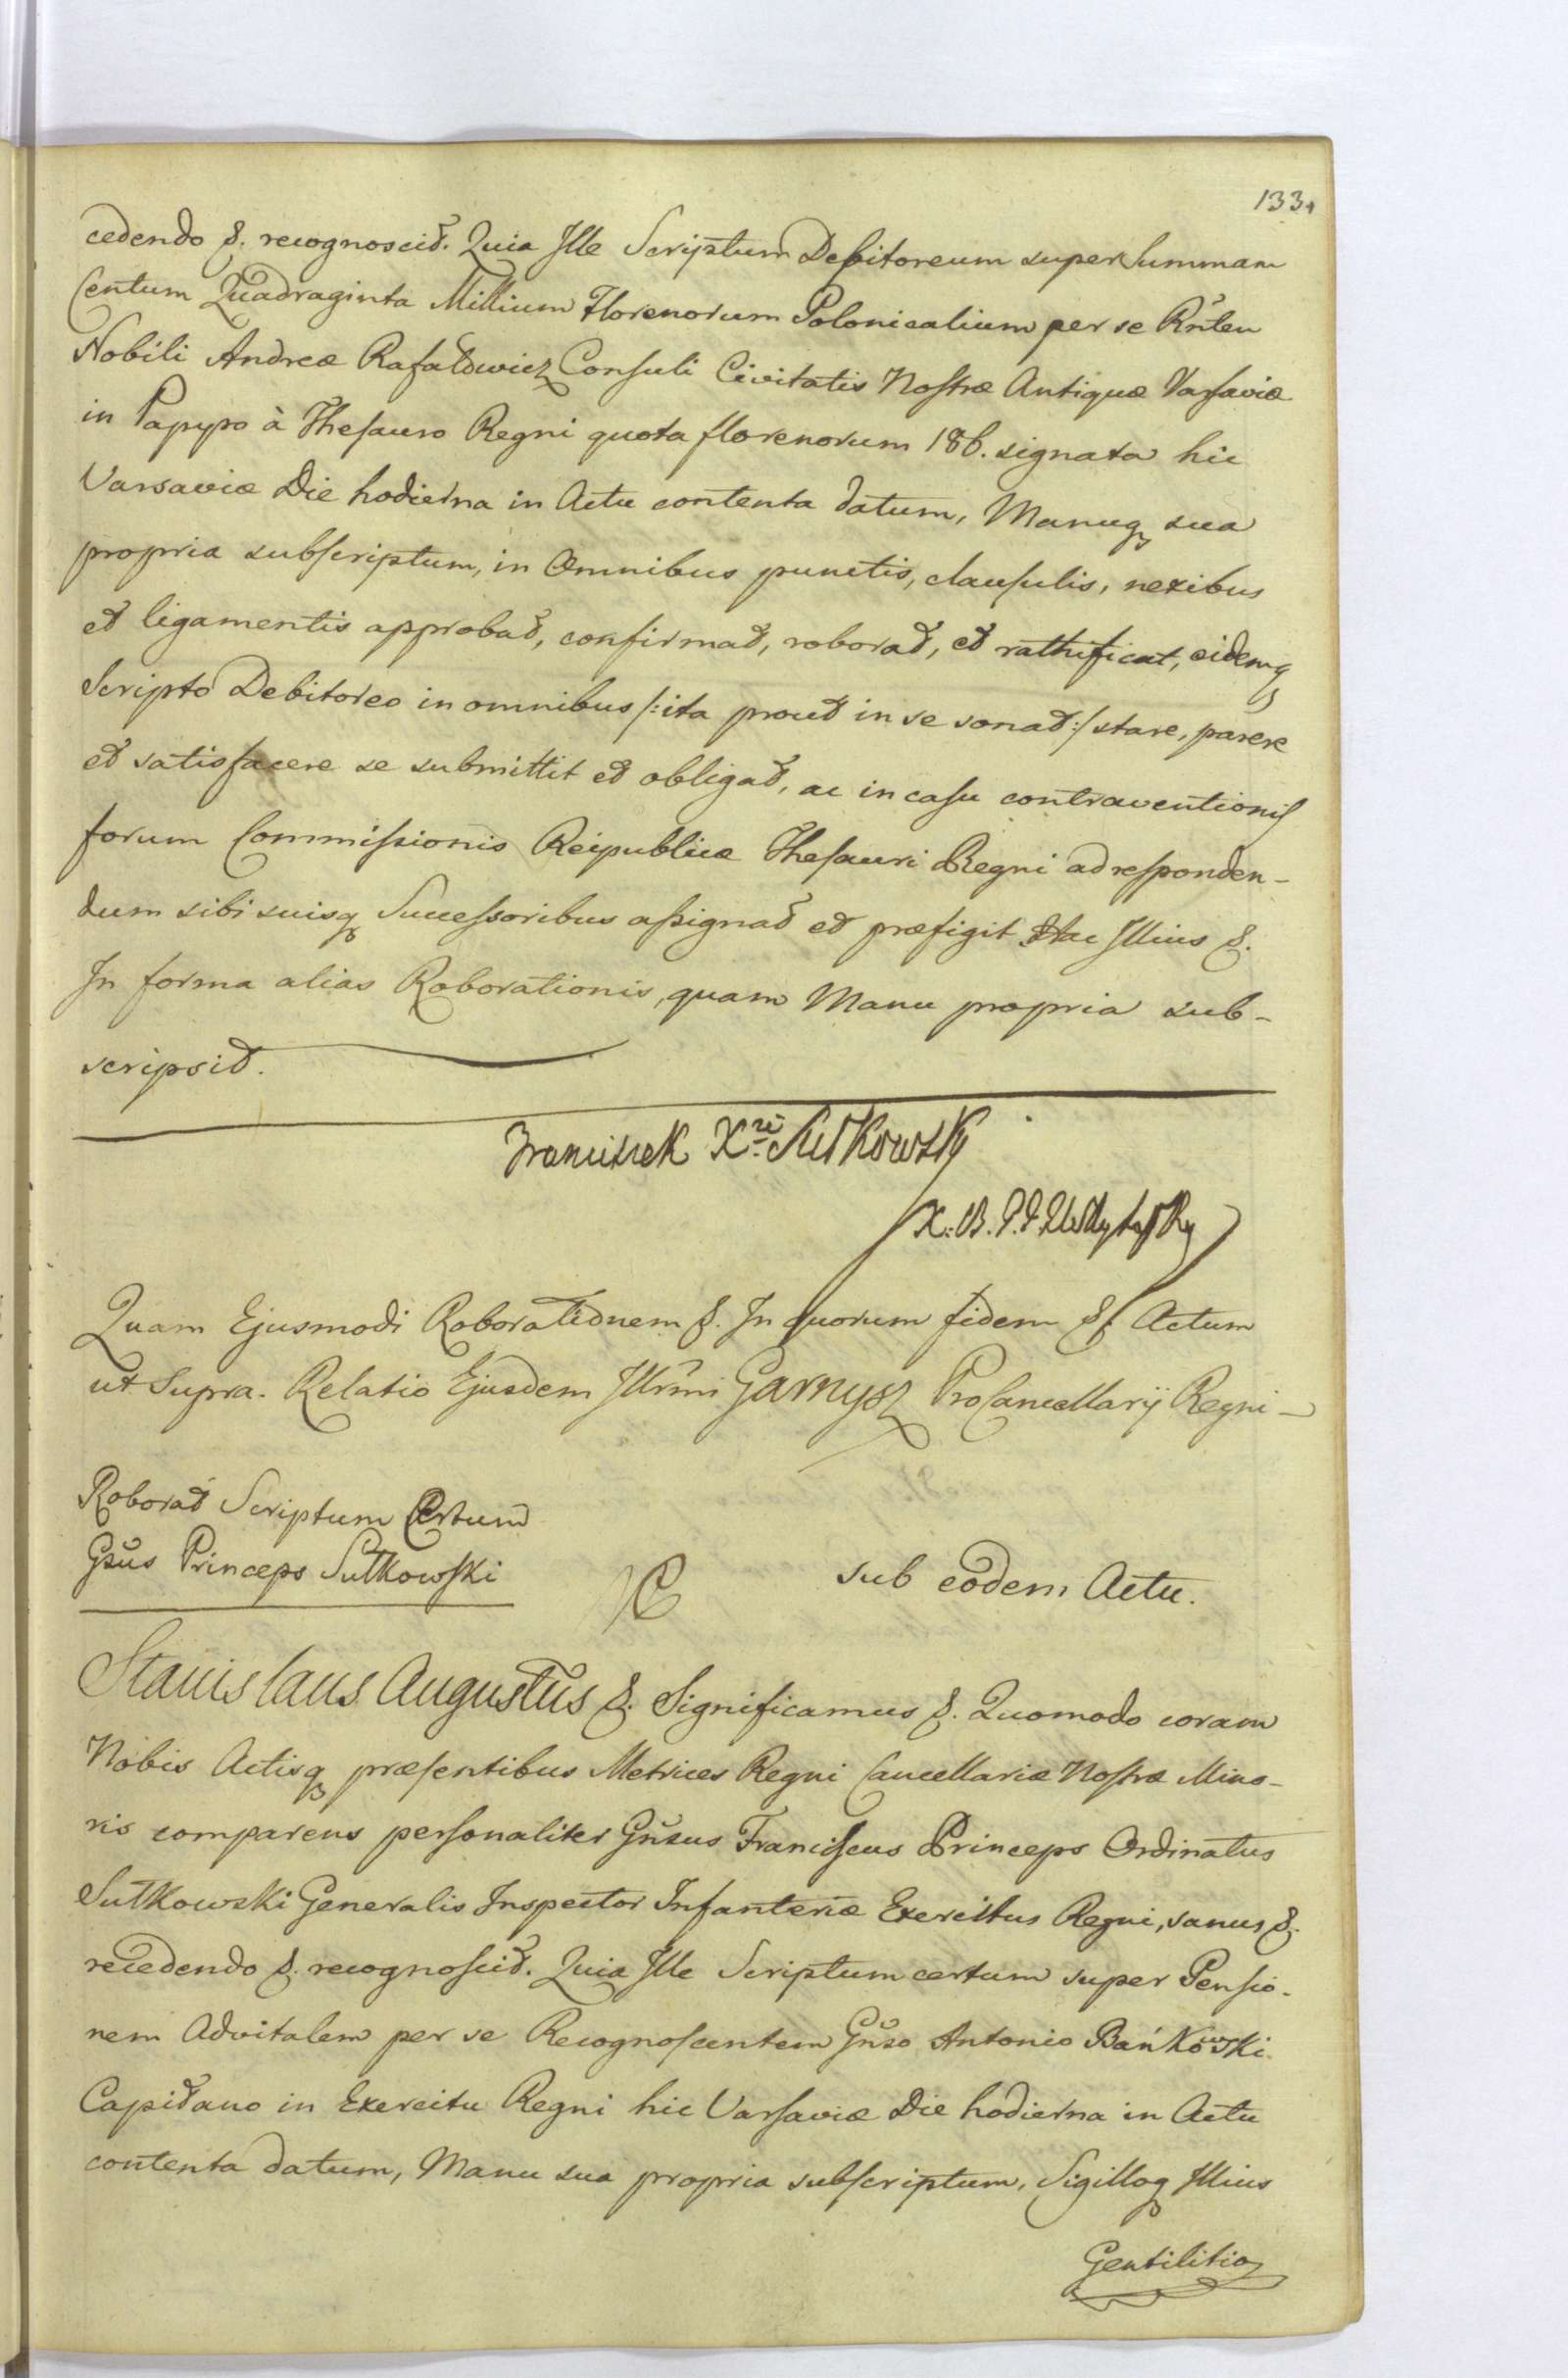 133
cedendo &. recognoscit. Quia Ille Scriptum Debitoreum super Summam
Centum Quadraginta Millium Florenorum Polonicalium per se Rñtem
Nobili Andreæ Rafałowicz Consuli Civitatis Nostræ Antiquæ Varsaviæ
in Papyro à Thesauro Regni quota florenorum 186. signata hic
Varsaviæ Die hodierna in Actu contenta datum, Manuq sua
propria subscriptum, in Omnibus punctis, clausulis, nexibus
et ligamentis approbat, confirmat, roborat, et rathificat, eidemq
Scripto Debitoreo in omnibus /:ita prout in se sonat:/ stare, parere
et satisfacere se submittit et obligat, ac in casu contraventionis
forum Commissionis Reipublicæ Thesauri Regni ad responden-
dum sibi suisq Successoribus assignat et præfigit Hac Illius &.
In forma alias Roborationis, quam Manu propria sub-
scripsit.
Franciszek Xże Sułkowsky
Quam Ejusmodi Roborationem &. In quorum fidem &. Actum
ut Supra. Relatio Ejusdem Illrmi Garnysz ProCancellarij Regni-
Roborat Scriptum Certum
Gsus Princeps Sułkowski
sub eodem Actu.
Stanislaus Augustus &. Significamus &. Quomodo coram
Nobis Actisq præsentibus Metrices Regni Cancellariæ Nostræ Mino-
ris comparens personaliter Gñsus Franciscus Princeps Ordinatus
Sułkowski Generalis Inspector Infanteriæ Exercitus Regni, sanus &.
recedendo &. recognoscit. Quia Ille Scriptum certum super Pensio-
nem Advitalem per se Recognoscentem Gñso Antonio Bańkowski
Capitano in Exercitu Regni hic Varsaviæ Die hodierna in Actu
contenta datum, Manu sua propria subscriptum, Sigilloq Illius
Gentilitio